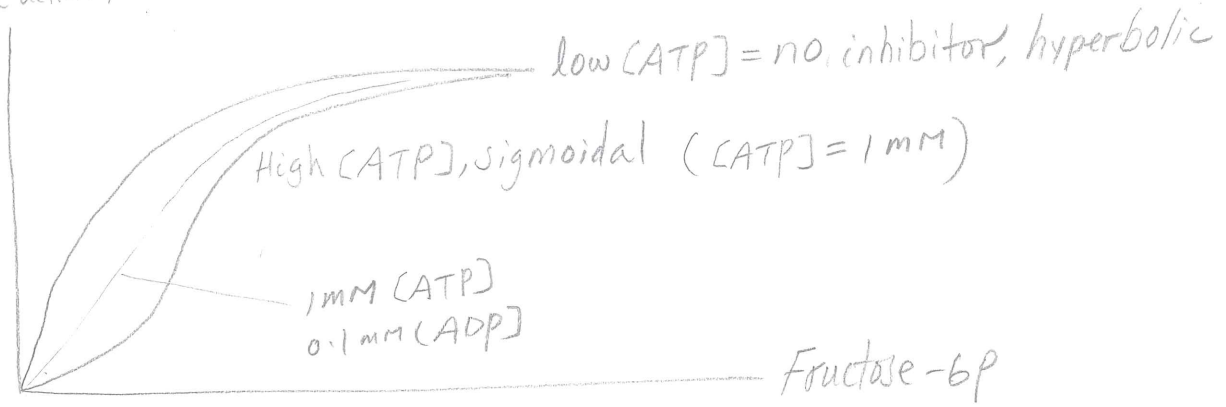 low [ATP] = no inhibitor, hyperbolic
High [ATP], sigmoidal ([ATP] = 1 mM)
1 mM [ATP]
0.1 mM [ADP]
Fructose-6P